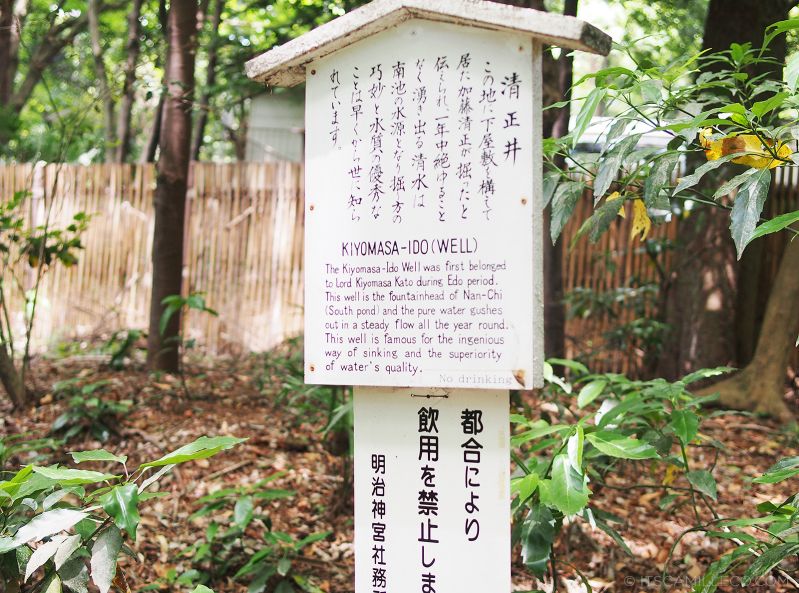 清正井
この地に下屋敷を構えて
居た加藤清正が掘ったと
伝えられ、一年中絶ゆること
なく湧き出る清水は
南池の水源となり掘り方の
巧妙と水質の優秀な
ことは早くから世に知ら
れています。
KIYOMASA-IDO (WELL)
The Kiyomasa-Ido Well was first belonged
to Lord Kiyomasa Kato during Edo period.
This well is the fountainhead of Nan-Chi
(South pond) and the pure water gushes
out in a steady flow all the year round.
This well is famous for the ingenious
way of sinking and the superiority
of water's quality.
No drinking
都合により
飲用を禁止しま
明治神宮社務
© ITSCAMILLECO.COM